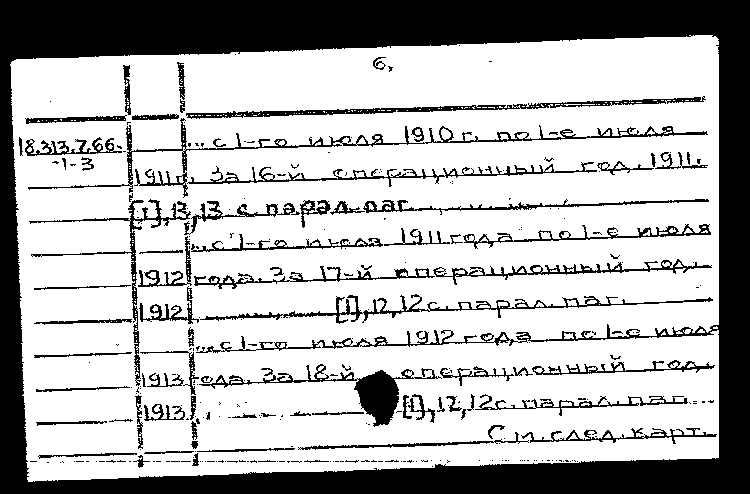 6.
18.313.7.66. ...с 1-го июля 1910 г. по 1-е июля
-1-3
1911 г. За 16-й операционный год. 1911.
[1], 13, 13 с. парал. паг.
...с 1-го июля 1911 года по 1-е июля
1912 года. За 17-й операционный год.
1912. [1], 12, 12 с. парал. паг.
...с 1-го июля 1912 года по 1-е июля
1913 года. За 18-й операционный год.
1913. [1], 12, 12 с. парал. паг...
См. след. карт.